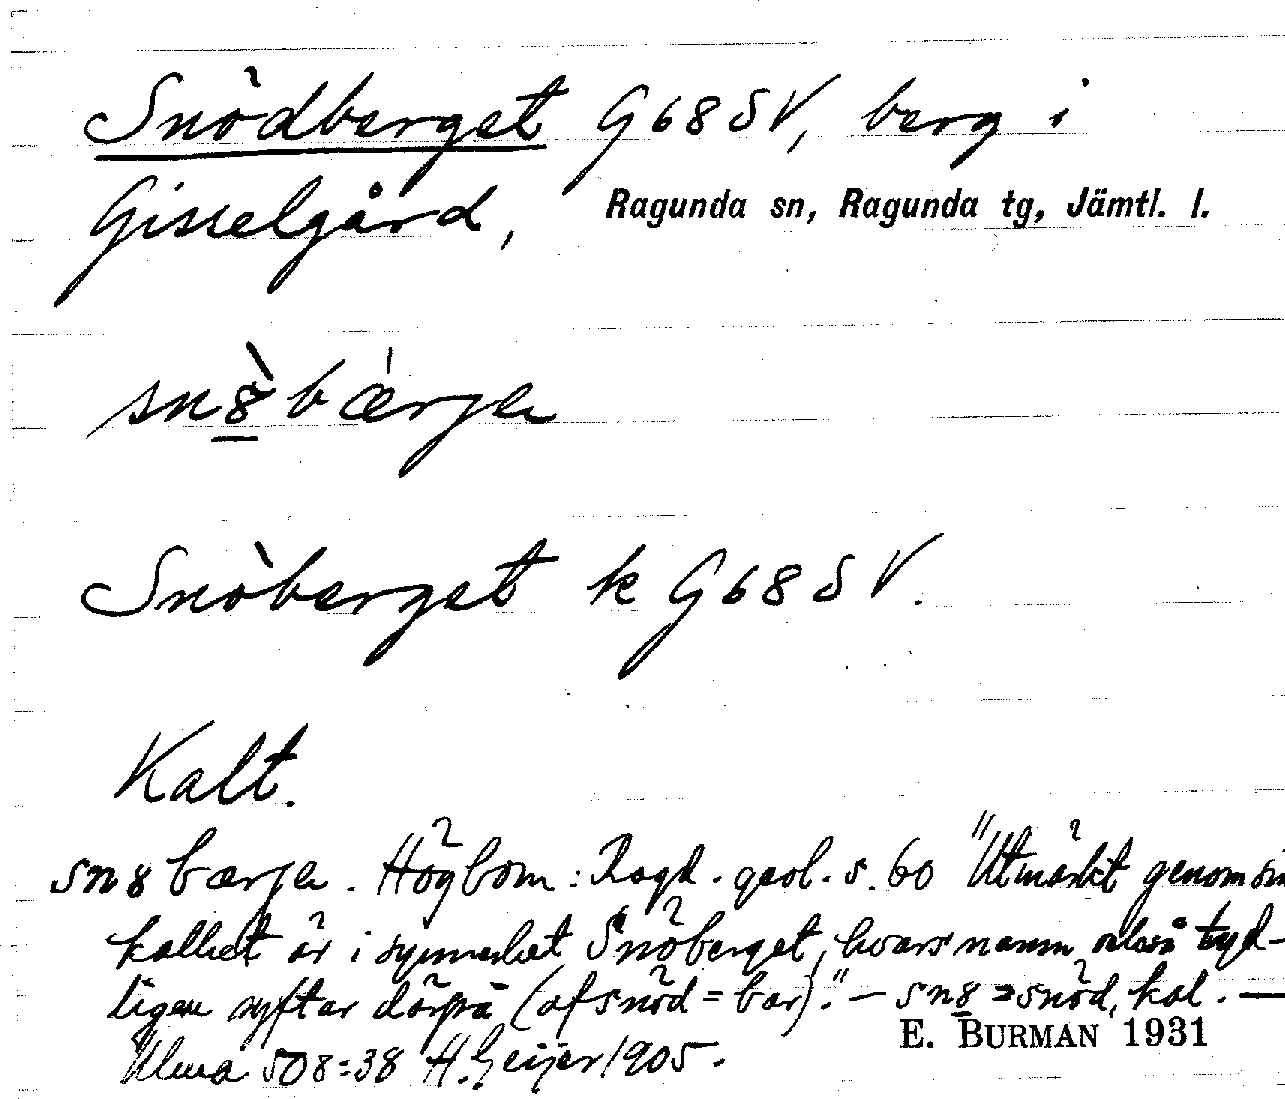 Snödberget G68SV, berg i
Gisselgård, Ragunda sn, Ragunda tg, Jämtl. l.
sn8̀bǽrje
Snöberget k G68SV.
Kalt.
sn8bærje. Högbom: Ragd. geol. s. 60 "Utmärkt genom sin
kalhet är i synnerhet Snöberget, hvars namn också tyd-
ligen syftar därpå (af snöd = bar)." — sn8 = snöd, kal. —
Ulma 508:38 H. Geijer 1905.
E. BURMAN 1931